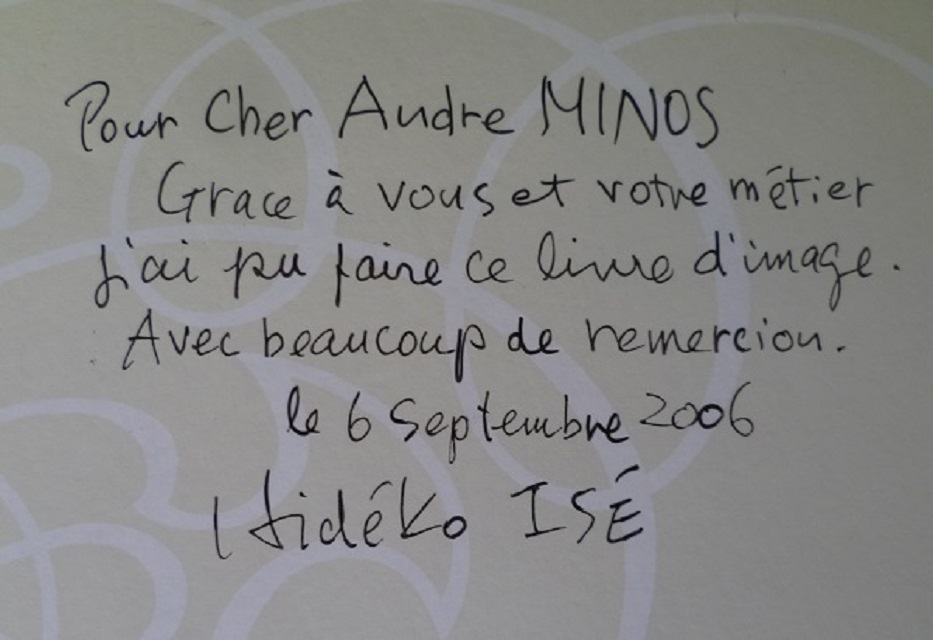 Pour Cher Andre MINOS
Grace à vous et votre métier
j'ai pu faire ce livre d'image.
Avec beaucoup de remercion.
le 6 Septembre 2006
Hidéko ISÉ